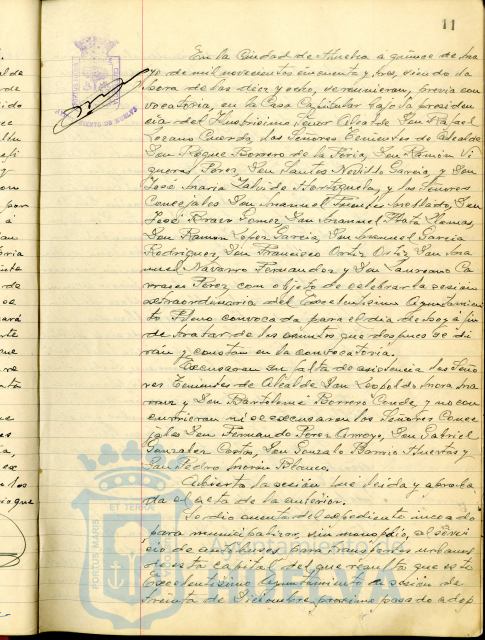 11
En la Ciudad de Huelva a quince de Ma
yo de mil novecientos cincuenta y tres, siendo la
hora de las diez y ocho, se reunieron, previa con
vocatoria, en la Casa Capitular bajo la presiden
cia del Ilustrisimo Señor Alcalde Don Rafael
Lozano Cuerda, los Señores Tenientes de Alcalde
Don Roque Borrero de la Feria, Don Ramón Vi
gueras Perez, Don Santos García, y Don
José María Zalvide Bortiguela, y los Señores
Concejales Don Manuel Fuentes Mellado, Don
José Bravo Gomez, Don Manuel Plata Llamas,
Don Ramón Lopez García, Don Manuel García
Rodriguez, Don Francisco Ortiz Ortiz, Don Ma
nuel Navarro Fernandez y Don Laureano Ca
rrasco Perez, con objeto de celebrar la sesión
extraordinaria del Excelentisimo Ayuntamien
to Pleno convocada para el día de hoy á fin
de tratar de los asuntos que despues se di
rán y constan en la convocatoria.
Excusaron su falta de asistencia los Seño
res Tenientes de Alcalde Don Leopoldo Mora
y Don Bartolomé Borrero Conde, y no con
currieron ni se excusaron los Señores Conce
jales Don Fernando Perez Arroyo, Don Gabriel
Gonzalez Cortés, Don Gonzalo Barrio Huertas y
Don Pedro Morón Blanco.
Abierta la sesión fué leida y aproba
da el acta de la anterior.
Se dio cuenta del expediente incoado
para municipalizar, sin monopolio, el Servi
cio de autobuses para transportes urbanos
de esta capital del que resulta que este
Excelentisimo Ayuntamiento en sesión de
treinta de Diciembre, proximo pasado adop
PORTUS MARIS
ET TERRÆ
Ayuntamiento de
Huelva